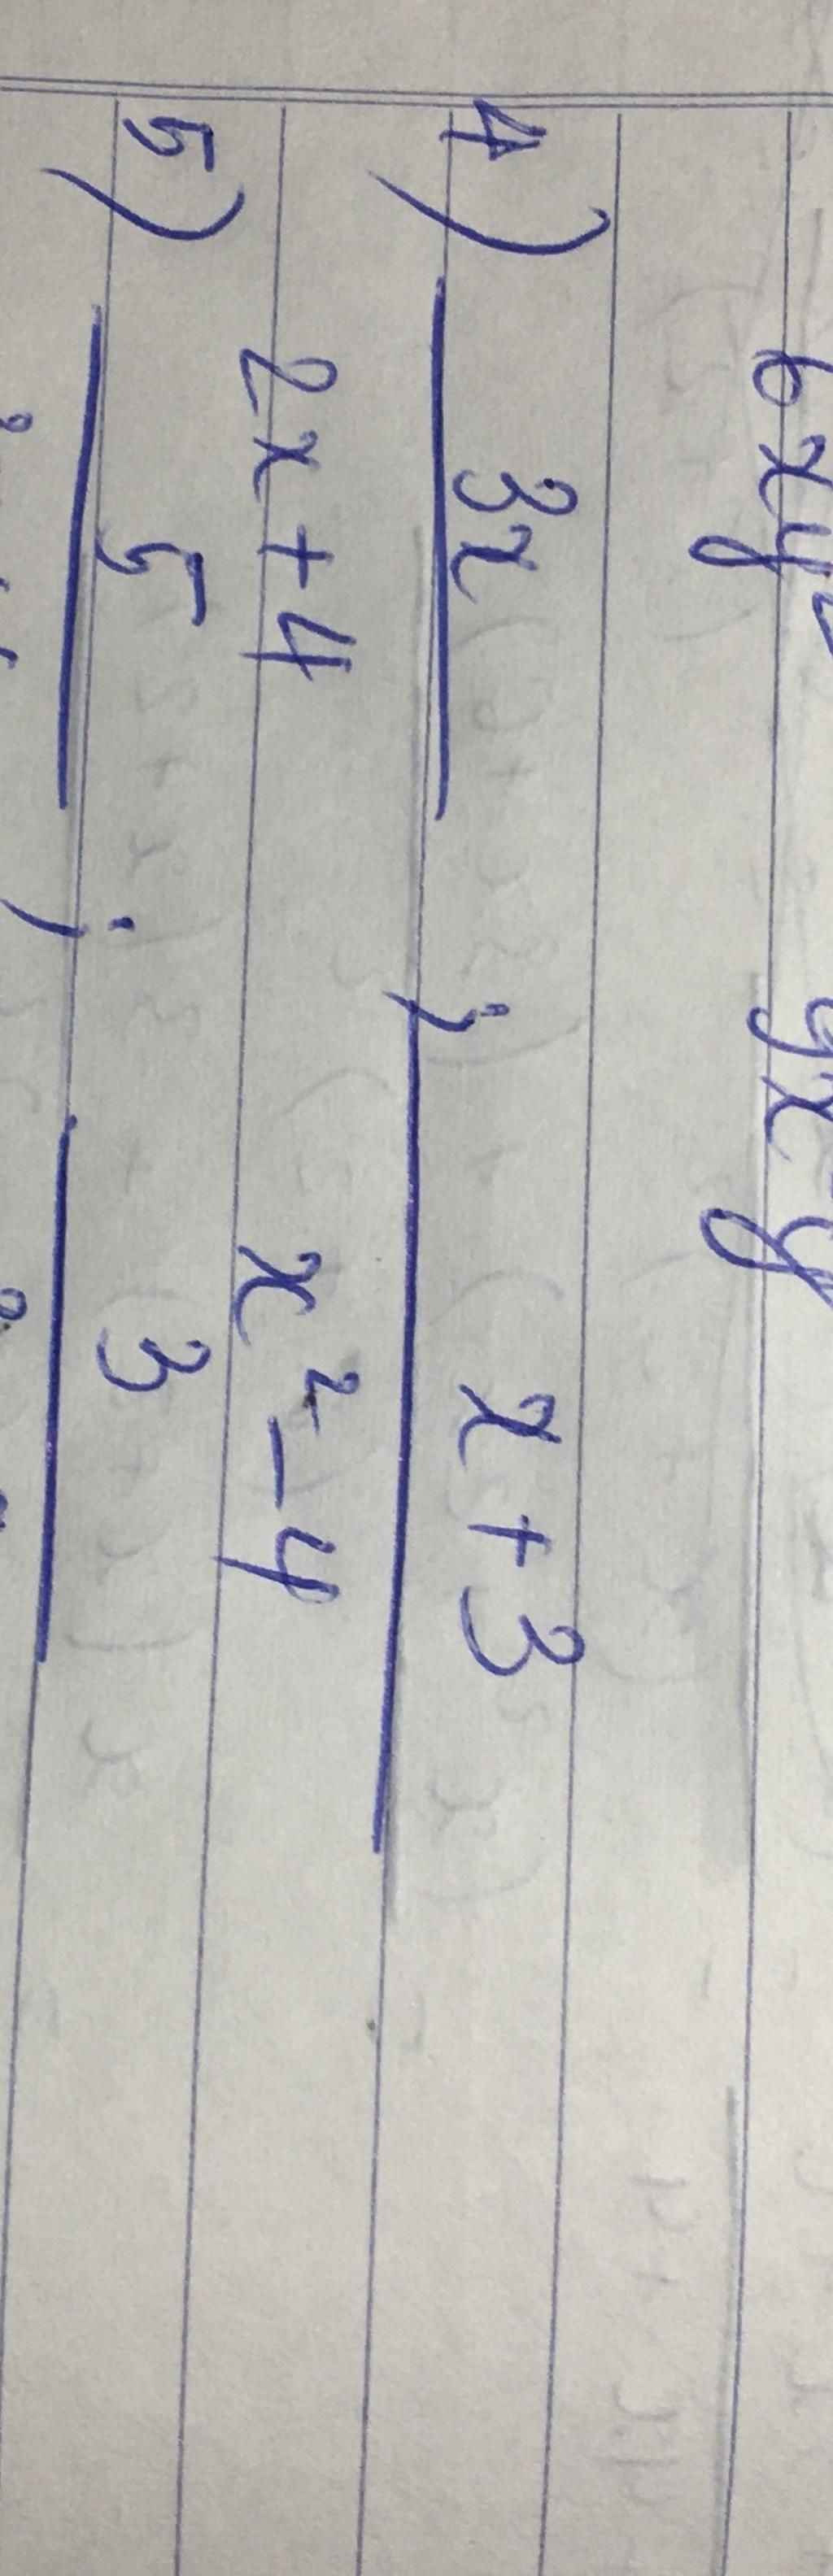 6xy² 9x²y
4) 3x ; x+3
2x+4 x²-4
5) 5 ; 3